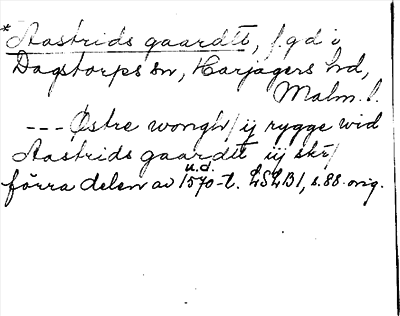 *Aastrids gaardtt, f.g.d i
Dagstorps sn, Harjagers hd,
Malm. l.
--- Østre wongh/ ij rygge wid
Aastrids gaardtt iij skr/
u.d.
förra delen av 1570-t. LSLB1, s.88. orig.